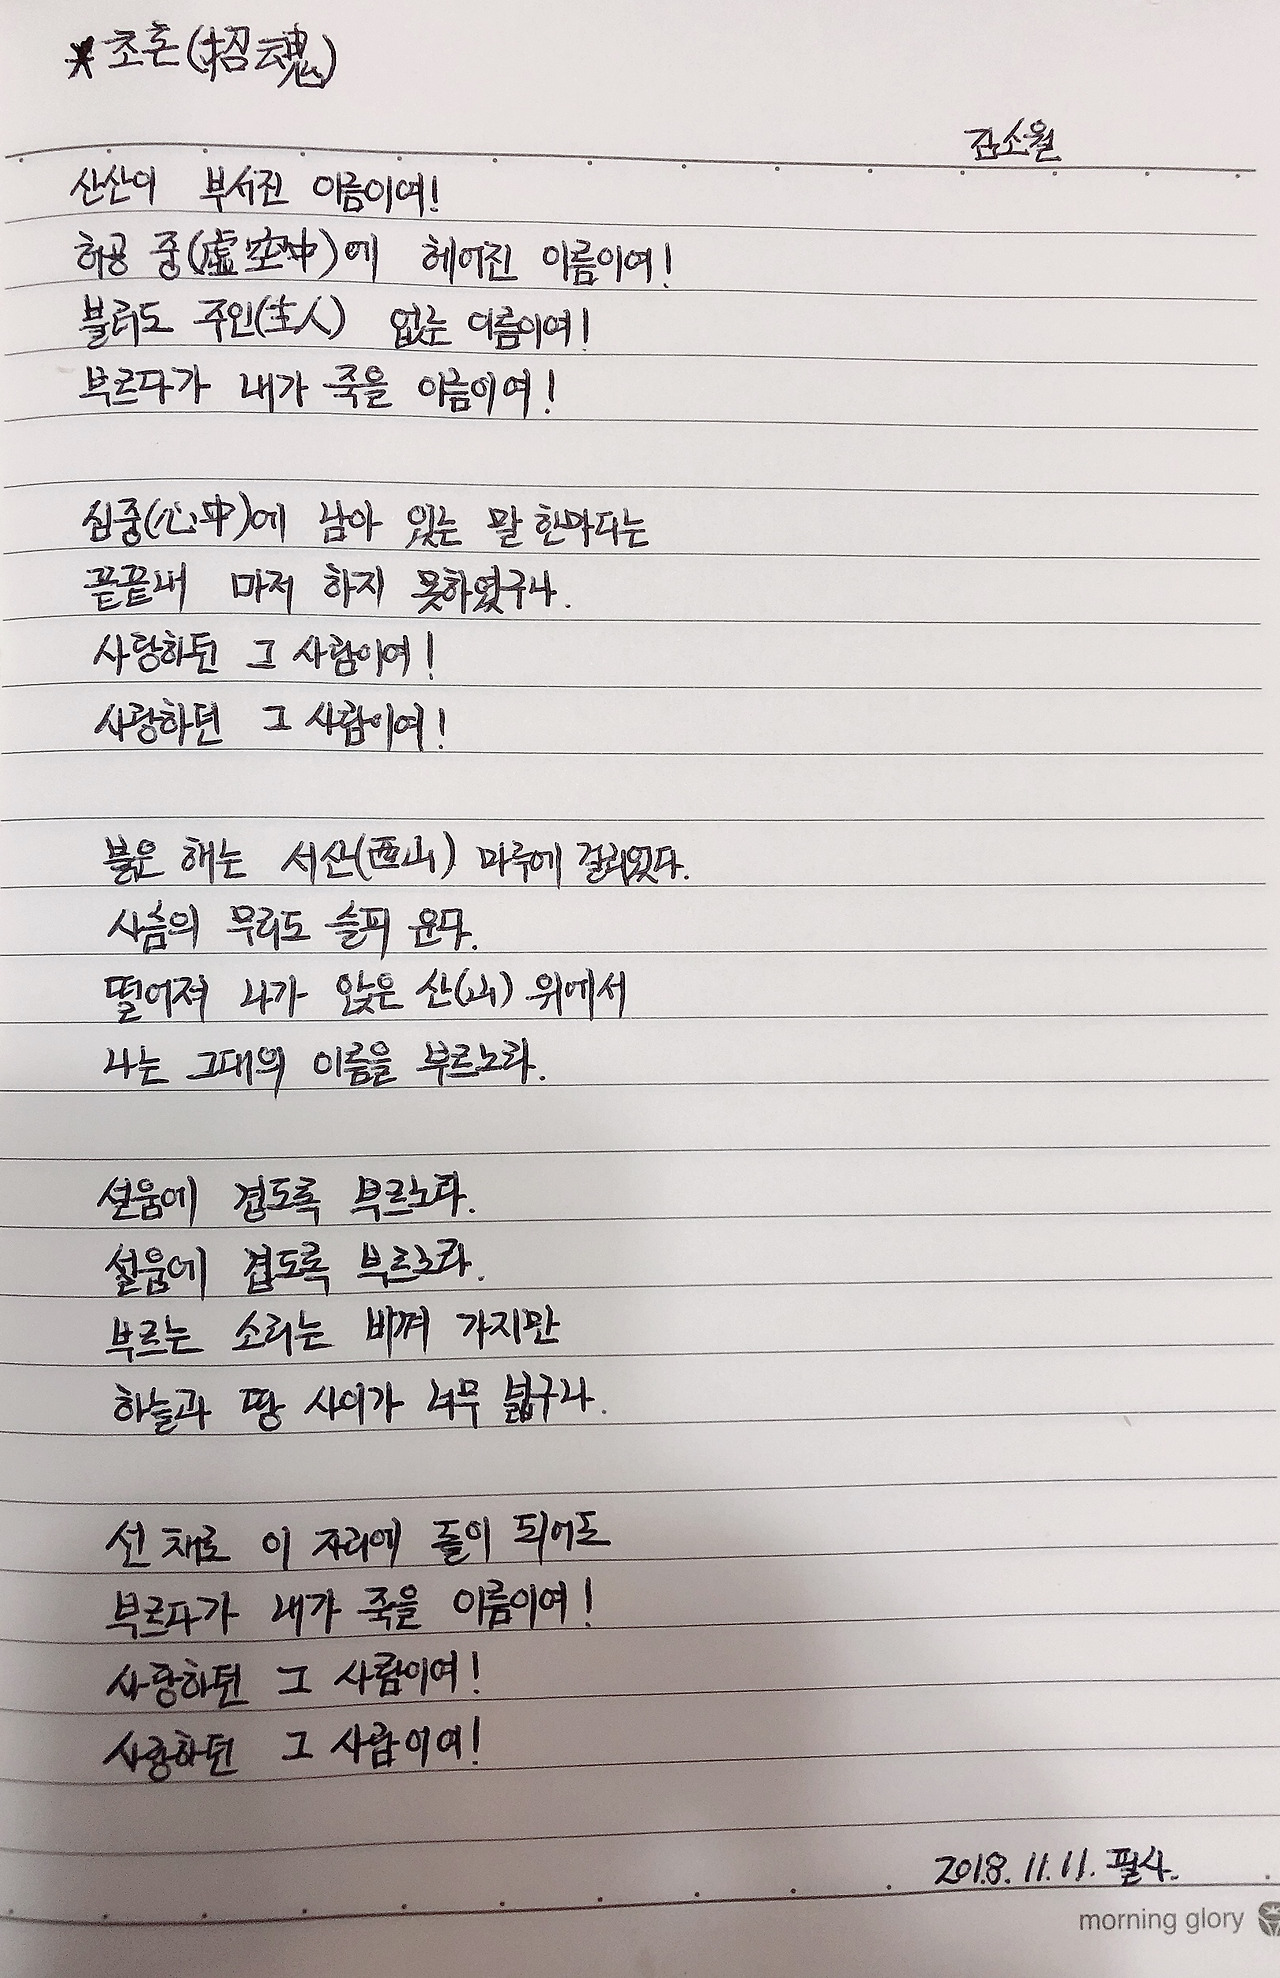 ★ 초혼(招魂)
김소월
산산이 부서진 이름이여!
허공 중(虛空中)에 헤어진 이름이여!
불러도 주인(主人) 없는 이름이여!
부르다가 내가 죽을 이름이여!
심중(心中)에 남아 있는 말 한마디는
끝끝내 마저 하지 못하였구나.
사랑하던 그 사람이여!
사랑하던 그 사람이여!
붉은 해는 서산(西山) 마루에 걸리었다.
사슴의 무리도 슬피 운다.
떨어져 나가 앉은 산(山) 위에서
나는 그대의 이름을 부르노라.
설움에 겹도록 부르노라.
설움에 겹도록 부르노라.
부르는 소리는 비껴 가지만
하늘과 땅 사이가 너무 넓구나.
선 채로 이 자리에 돌이 되어도
부르다가 내가 죽을 이름이여!
사랑하던 그 사람이여!
사랑하던 그 사람이여!
2018.11.11. 필사.
morning glory